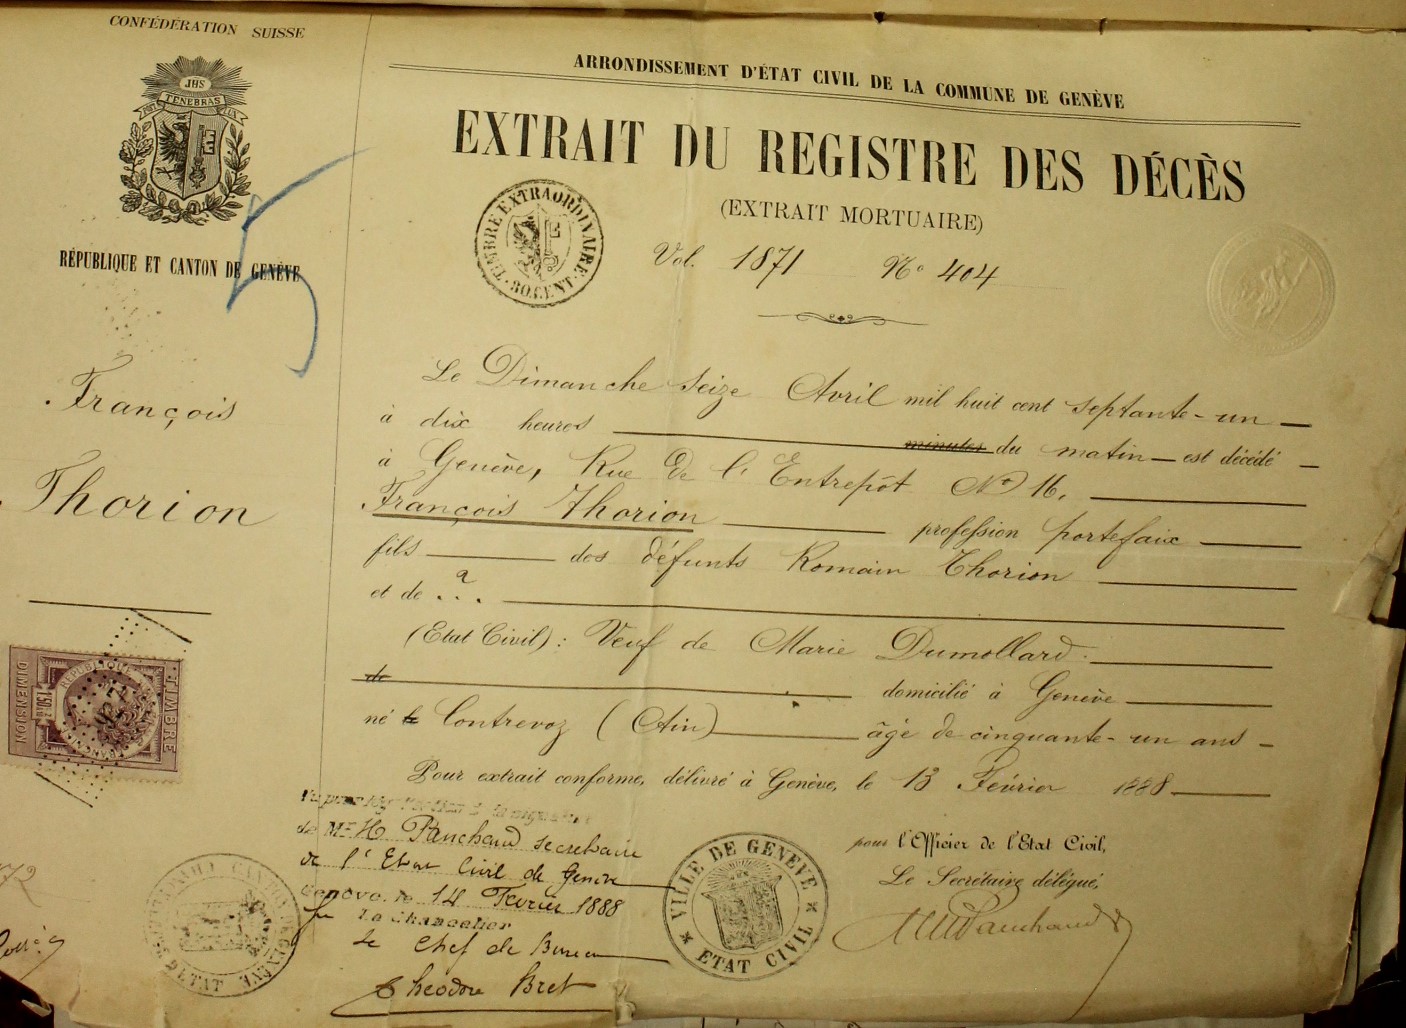 CONFÉDÉRATION SUISSE
JHS
POST TENEBRAS LUX
RÉPUBLIQUE ET CANTON DE GENÈVE
5
François
Thorion
TIMBRE
DIMENSION
RÉPUBLIQUE
ARRONDISSEMENT D'ÉTAT CIVIL DE LA COMMUNE DE GENÈVE
EXTRAIT DU REGISTRE DES DÉCÈS
(EXTRAIT MORTUAIRE)
TIMBRE EXTRAORDINAIRE
30 CENT
Vol. 1871 No 404
Le Dimanche seize Avril mil huit cent septante-un
à dix heures minutes du matin est décédé
à Genève, Rue de l'Entrepôt No 16,
François Thorion profession portefaix
fils des défunts Romain Thorion
et de . ? .
(Etat Civil): Veuf de Marie Dumollard.
de domicilié à Genève
né à Contrevoz (Ain) âgé de cinquante-un ans
Pour extrait conforme, délivré à Genève, le 13 Février 1888
de M. H Panchaud secrétaire
de l'Etat Civil de Genève
Genève, le 14 Fevrier 1888
Le Chancelier
Le Chef de Bureau
Théodore Bret
VILLE DE GENÈVE
ETAT CIVIL
pour l'Officier de l'Etat Civil,
Le Secrétaire délégué,
Panchaud